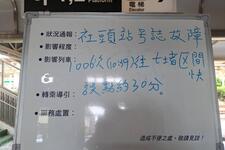 Platform
電梯
Elevator
狀況通報：社頭站号誌故障
影響程度：
影響列車：1006次(10:49)往七堵區間快
誤點約30分。
轉乘導引：
服務處置：
造成不便之處，敬請見諒！